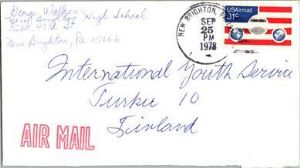 George Walker
New Brighton High School
3200 43rd St
New Brighton, PA 15066
NEW BRIGHTON,
SEP
25
PM
1978
USAirmail
31c
International Youth Service
Turku 10
Finland
AIR MAIL